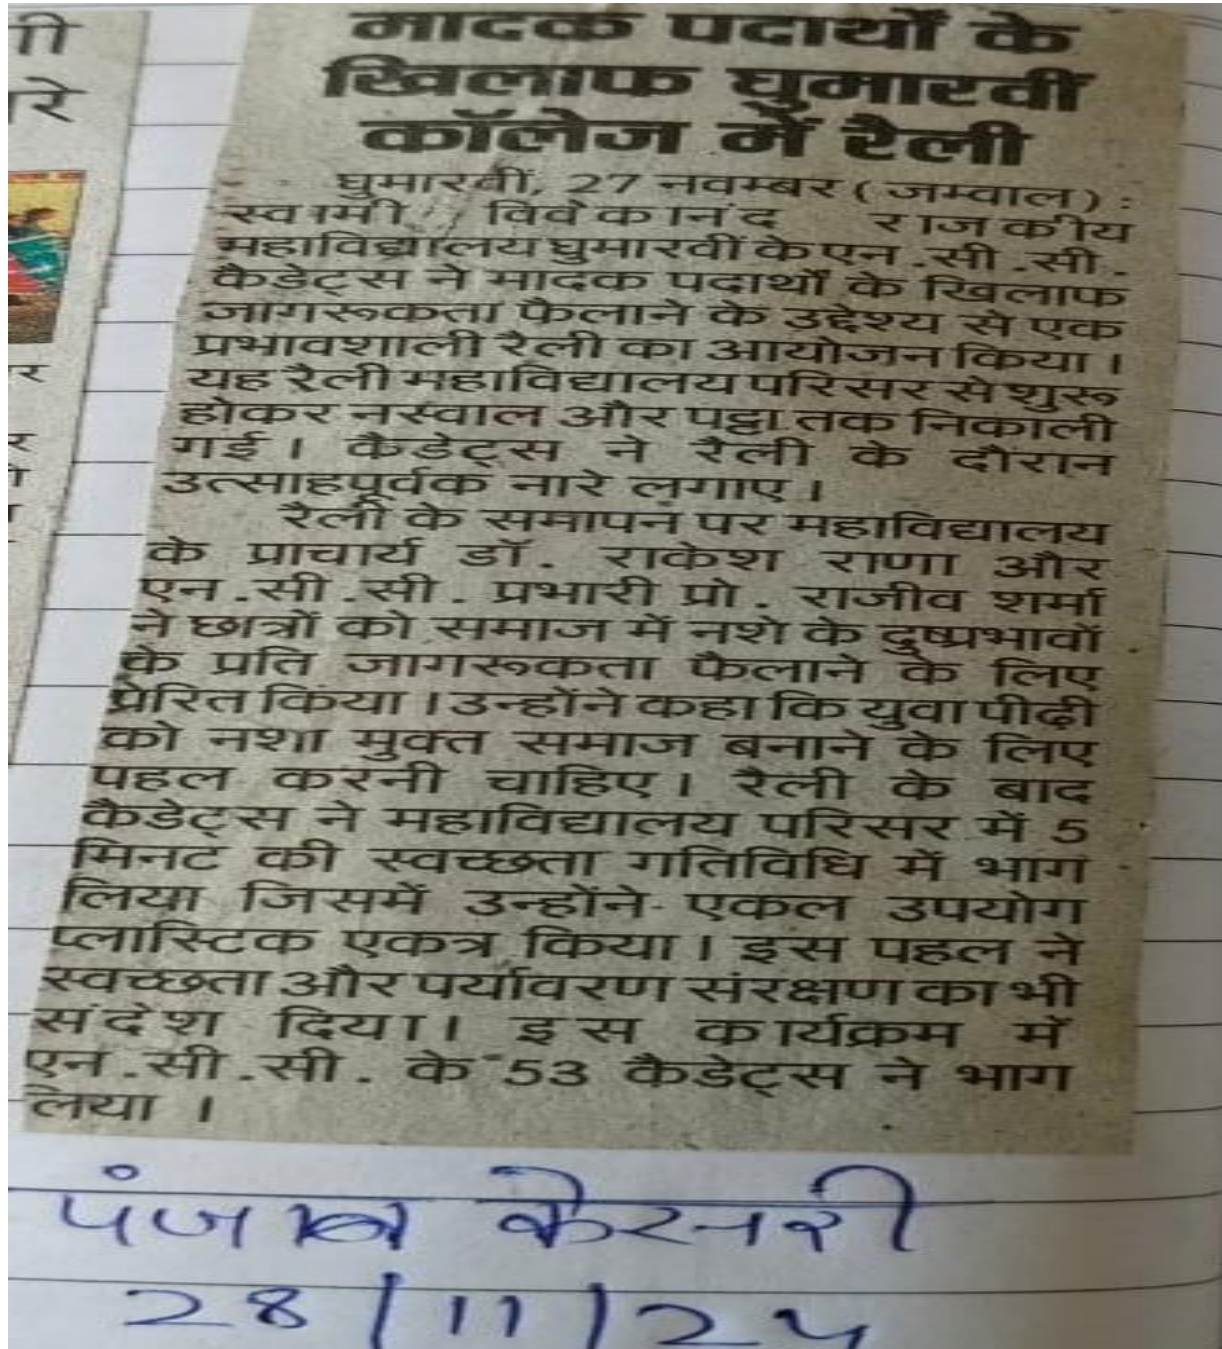 गी
रे
र
र
मादक पदार्थों के
खिलाफ घुमारवीं
कॉलेज में रैली
घुमारवीं, 27 नवम्बर (जम्वाल) :
स्वामी विवेकानंद राजकीय
महाविद्यालय घुमारवीं के एन.सी.सी.
कैडेट्स ने मादक पदार्थों के खिलाफ
जागरूकता फैलाने के उद्देश्य से एक
प्रभावशाली रैली का आयोजन किया।
यह रैली महाविद्यालय परिसर से शुरू
होकर नस्वाल और पट्टा तक निकाली
गई। कैडेट्स ने रैली के दौरान
उत्साहपूर्वक नारे लगाए।
रैली के समापन पर महाविद्यालय
के प्राचार्य डॉ. राकेश राणा और
एन.सी.सी. प्रभारी प्रो. राजीव शर्मा
ने छात्रों को समाज में नशे के दुष्प्रभावों
के प्रति जागरूकता फैलाने के लिए
प्रेरित किया। उन्होंने कहा कि युवा पीढ़ी
को नशा मुक्त समाज बनाने के लिए
पहल करनी चाहिए। रैली के बाद
कैडेट्स ने महाविद्यालय परिसर में 5
मिनट की स्वच्छता गतिविधि में भाग
लिया जिसमें उन्होंने एकल उपयोग
प्लास्टिक एकत्र किया। इस पहल ने
स्वच्छता और पर्यावरण संरक्षण का भी
संदेश दिया। इस कार्यक्रम में
एन.सी.सी. के 53 कैडेट्स ने भाग
लिया।
पंजाब केसरी
28/11/24